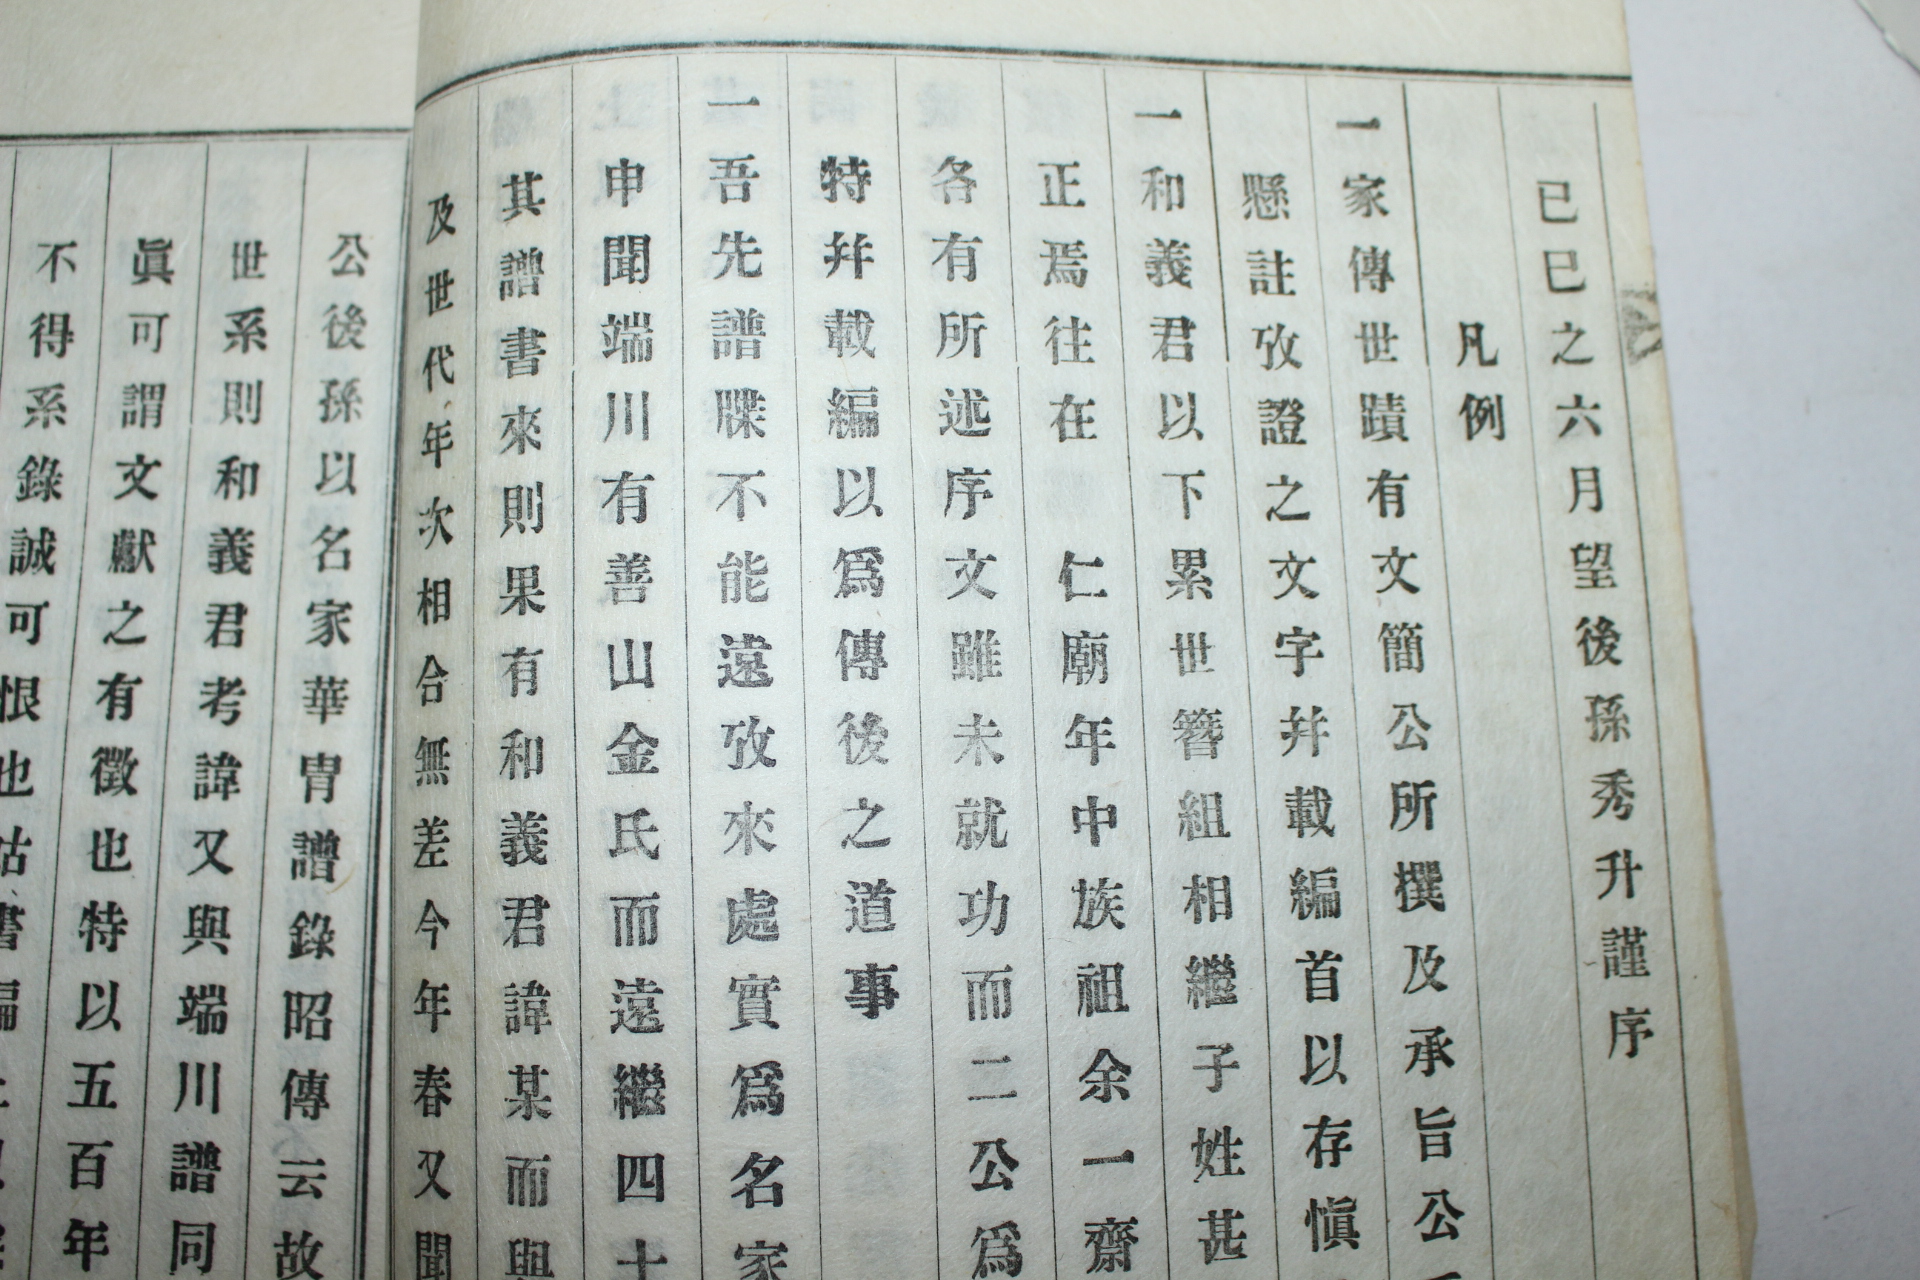 已巳之六月望後孫秀升謹序
凡例
一家傳世蹟有文簡公所撰及承旨公
懸註攷證之文字幷載編首以存愼
一和義君以下累世簪組相繼子姓甚
正焉往在 仁廟年中族祖余一齋
各有所述序文雖未就功而二公爲
特幷載編以爲傳後之道事
一吾先譜牒不能遠攷來處實爲名家
申聞端川有善山金氏而遠繼四十
其譜書來則果有和義君諱某而與
及世代年次相合無差今年春又聞
公後孫以名家華冑譜錄昭傳云故
世系則和義君考諱又與端川譜同
眞可謂文獻之有徵也特以五百年
不得系錄誠可恨也